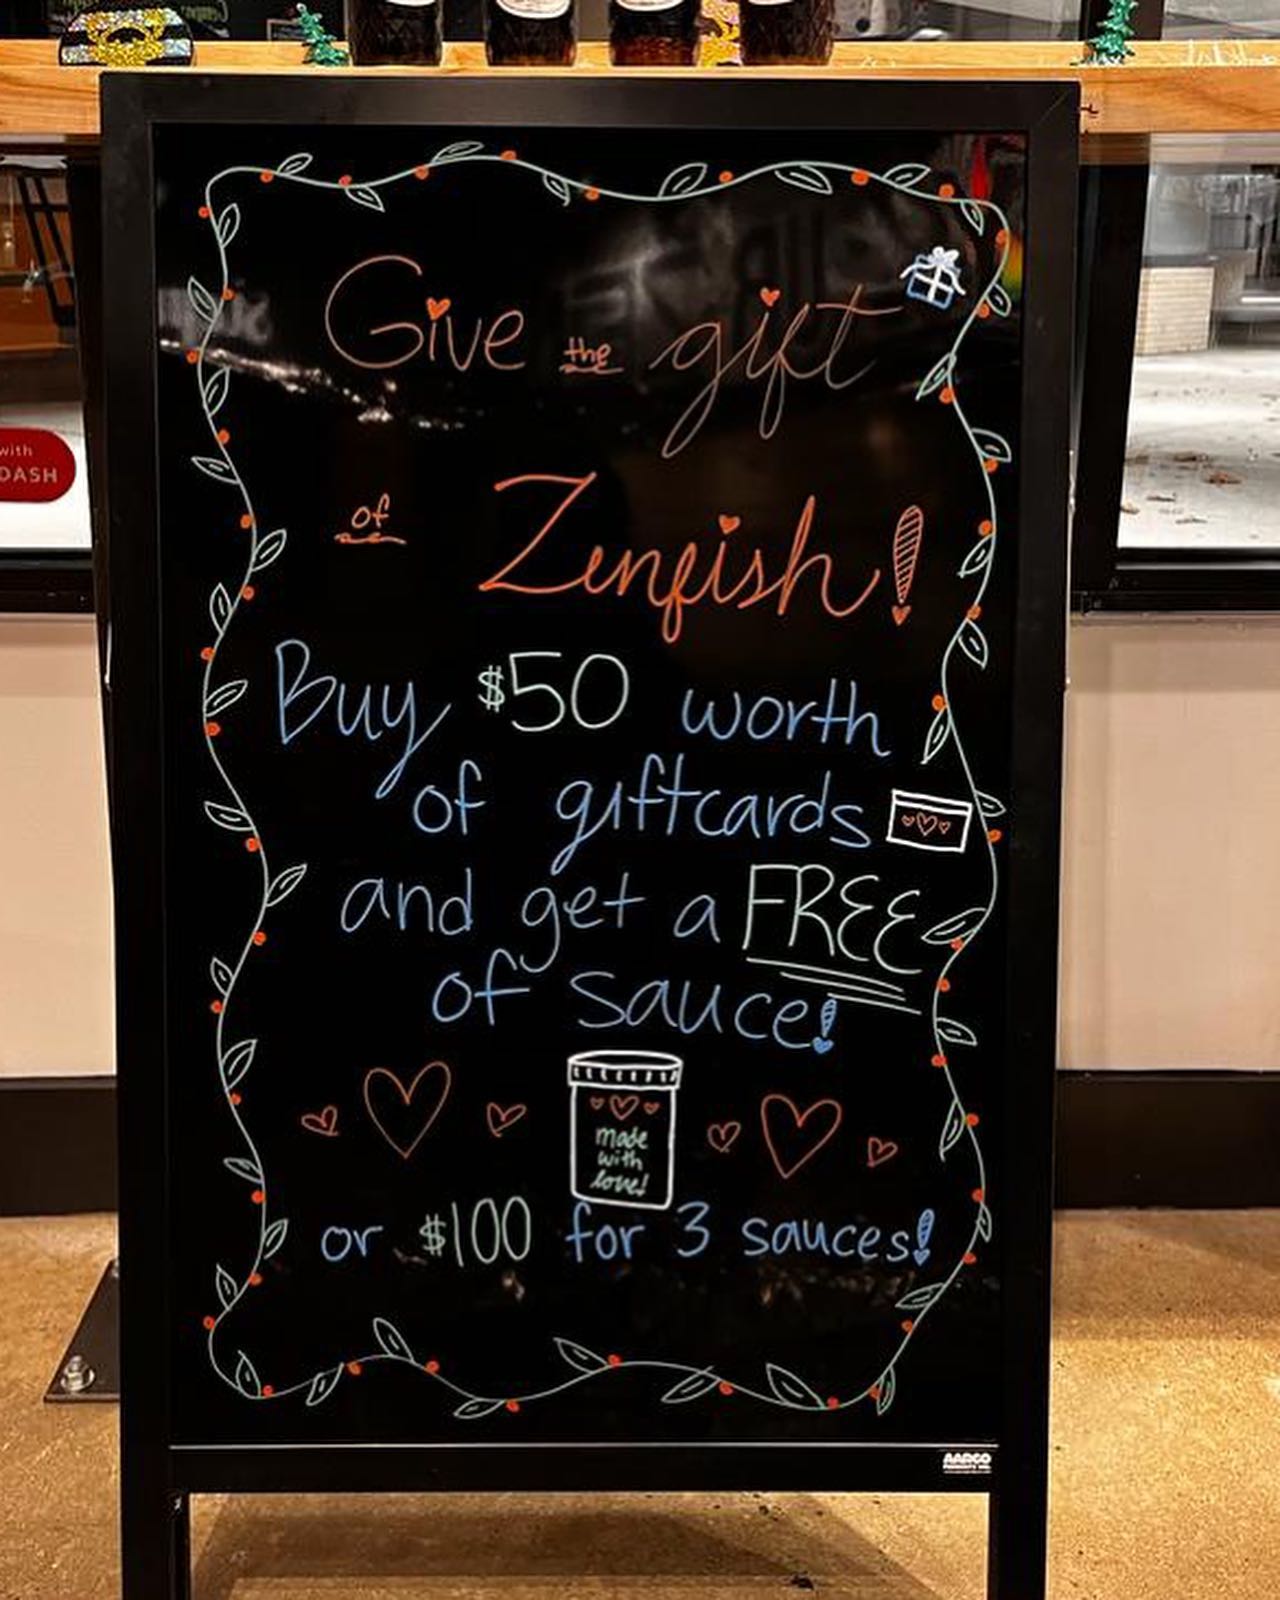 Give the gift
of Zenfish!
Buy $50 worth
of giftcards
and get a FREE
of sauce!
made
with
love!
or $100 for 3 sauces!
with
DASH
AARCO